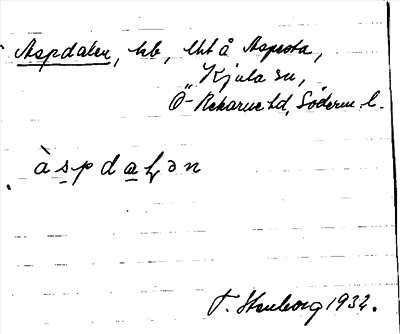 Aspdalen, lb, lht å Aspesta,
Kjula sn,
Ö-Rekarne hd, Söderm. l.
àspdaḷən
T. Stenborg 1932.